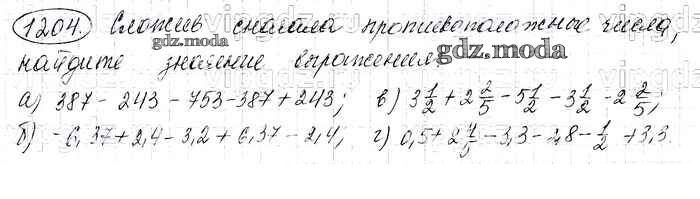 1204. Сложив сначала противоположные числа,
найдите значение выражения:
а) 387 - 243 - 753 - 387 + 243; в) 3 1/2 + 2 2/5 - 5 1/2 - 3 1/2 - 2 2/5;
б) - 6,37 + 2,4 - 3,2 + 6,37 - 2,4; г) 0,5 + 2 4/5 - 3,3 - 2,8 - 1/2 + 3,3.
gdz.moda
gdz.moda